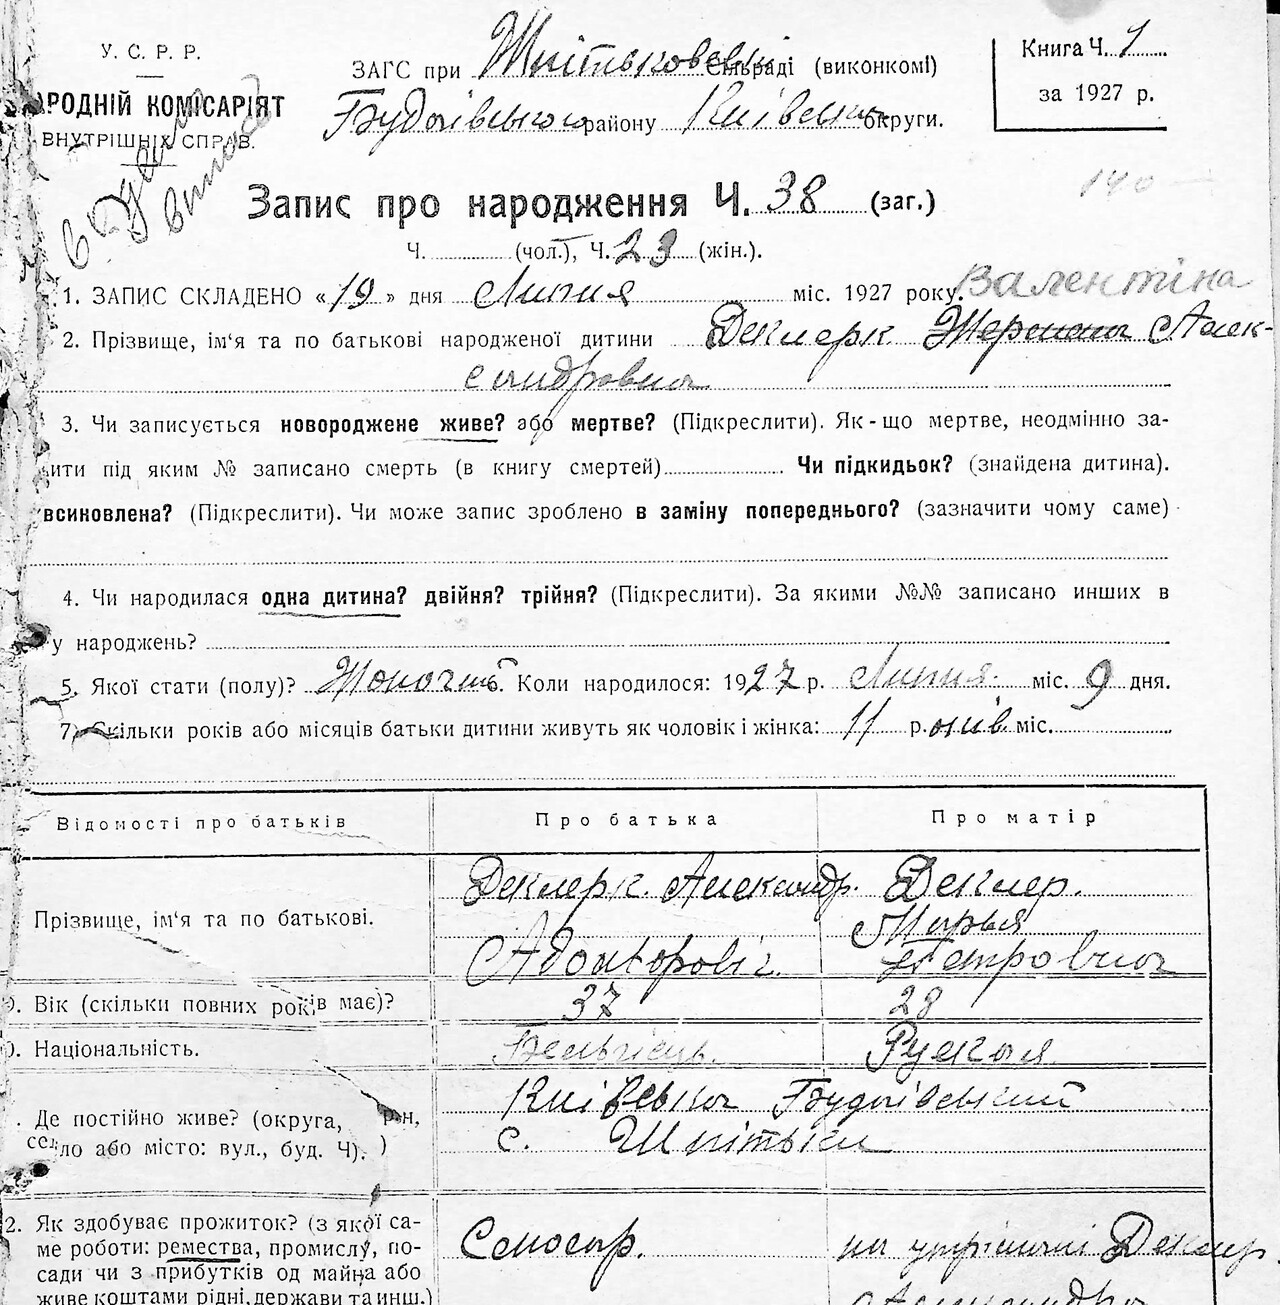 У. С. Р. Р.
НАРОДНІЙ КОМІСАРІЯТ
ВНУТРІШНІХ СПРАВ.
ЗАГС при Шпітьковські Сільраді (виконкомі)
Будаївського району Київська округи.
Книга Ч. 1
за 1927 р.
140
Запис про народження Ч. 38 (заг.)
Ч. (чол.), Ч. 23 (жін.).
1. ЗАПИС СКЛАДЕНО « 19 » дня Липня міс. 1927 року. Валентіна
2. Прізвище, ім'я та по батькові народженої дитини Деклерк Жермена Алек-
сандровна
3. Чи записується новороджене живе? або мертве? (Підкреслити). Як-що мертве, неодмінно за-
ити під яким № записано смерть (в книгу смертей) Чи підкидьок? (знайдена дитина).
всиновлена? (Підкреслити). Чи може запис зроблено в заміну попереднього? (зазначити чому саме)
4. Чи народилася одна дитина? двійня? трійня? (Підкреслити). За якими №№ записано инших в
у народжень?
5. Якої стати (полу)? Жоночий. Коли народилося: 1927 р. Липня. міс. 9 дня.
7. Скільки років або місяців батьки дитини живуть як чоловік і жінка: 11 р. оків міс.
Відомості про батьків Про батька Про матір
Прізвище, ім'я та по батькові.
Деклерк Александр. Деклер.
Марья
Адольфовіч. Петровна
. Вік (скільки повних років має)? 37 28
. Національність. Бельгієць. Руская
. Де постійно живе? (округа, р-н,
село або місто: вул., буд. Ч).
Київська Будаївський
с. Шпітьки
2. Як здобуває прожиток? (з якої са-
ме роботи: ремества, промислу, по-
сади чи з прибутків од майна або
живе коштами рідні, держави та инш.)
Слюсар. на утріманні Деклер
Александра